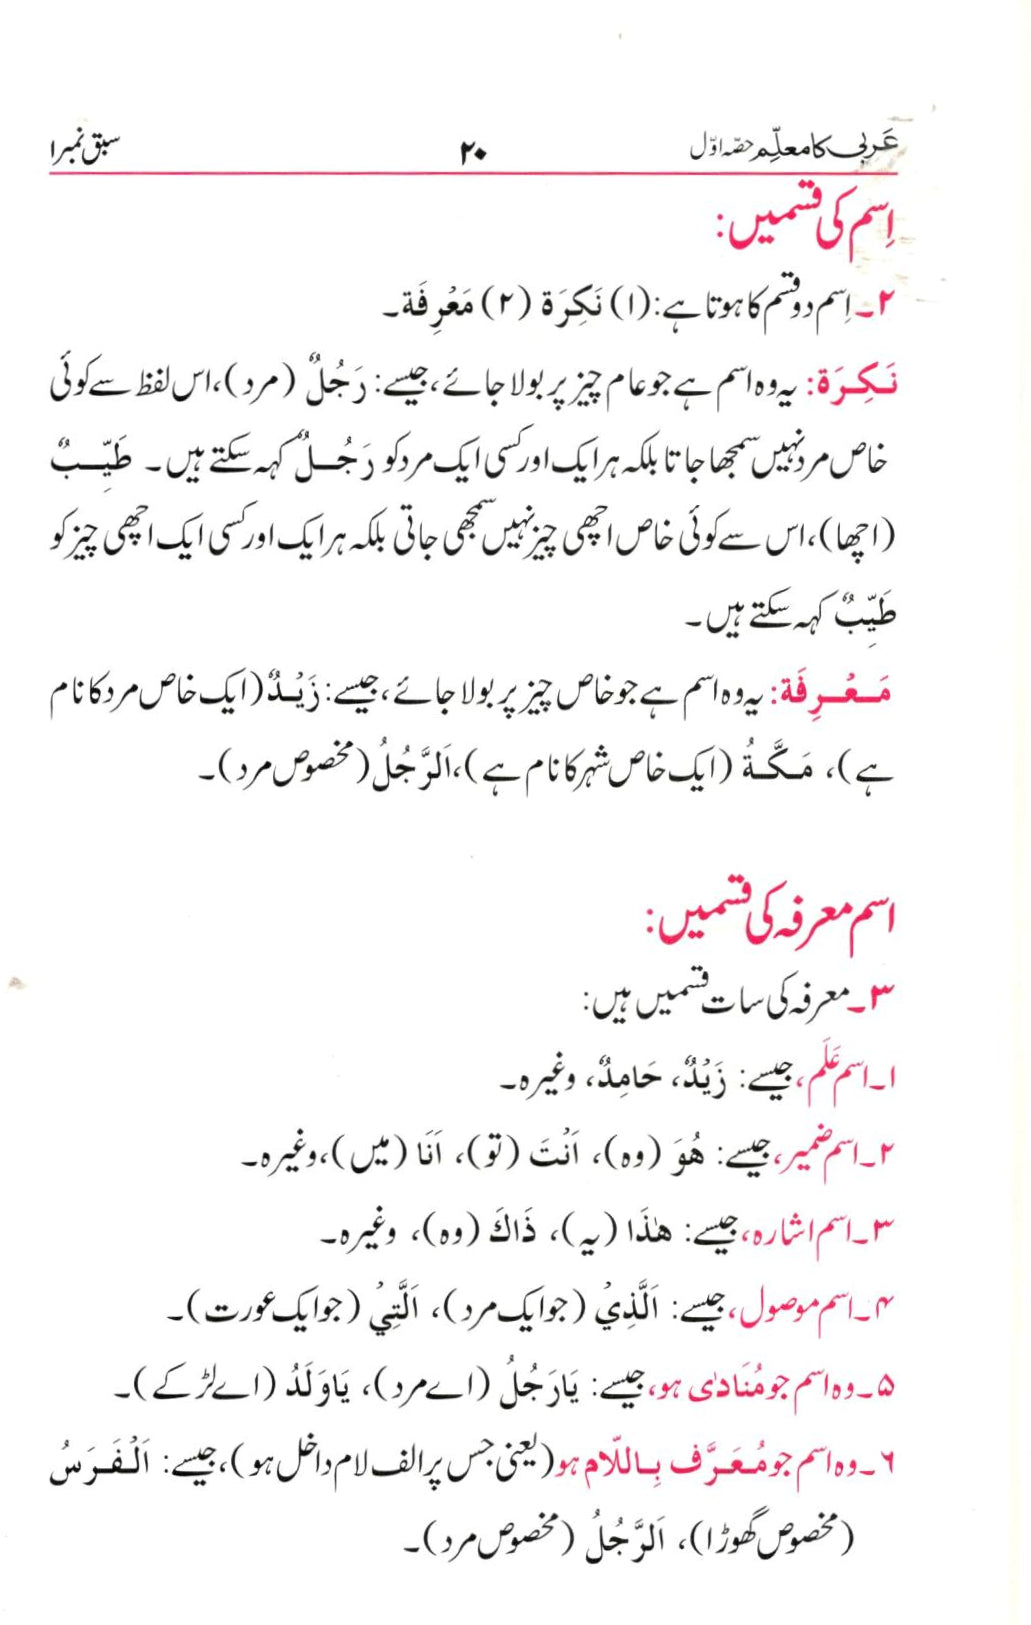 عَربی کا معلّم حصّہ اوّل ۲۰ سبق نمبر ۱
اِسم کی قسمیں:
۲۔ اِسم دو قسم کا ہوتا ہے: (۱) نَكِرَة (۲) مَعْرِفَة۔
نَكِرَة: یہ وہ اسم ہے جو عام چیز پر بولا جائے، جیسے: رَجُلٌ (مرد)، اس لفظ سے کوئی
خاص مرد نہیں سمجھا جاتا بلکہ ہر ایک اور کسی ایک مرد کو رَجُلٌ کہہ سکتے ہیں۔ طَيِّبٌ
(اچھا)، اس سے کوئی خاص اچھی چیز نہیں سمجھی جاتی بلکہ ہر ایک اور کسی ایک اچھی چیز کو
طَيِّبٌ کہہ سکتے ہیں۔
مَعْرِفَة: یہ وہ اسم ہے جو خاص چیز پر بولا جائے، جیسے: زَيْدٌ (ایک خاص مرد کا نام
ہے)، مَكَّةُ (ایک خاص شہر کا نام ہے)، اَلرَّجُلُ (مخصوص مرد)۔
اسم معرفہ کی قسمیں:
۳۔ معرفہ کی سات قسمیں ہیں:
۱۔ اسم عَلَم، جیسے: زَيْدٌ، حَامِدٌ، وغیرہ۔
۲۔ اسم ضمیر، جیسے: هُوَ (وہ)، اَنْتَ (تو)، اَنَا (میں)، وغیرہ۔
۳۔ اسم اشارہ، جیسے: هٰذَا (یہ)، ذَاكَ (وہ)، وغیرہ۔
۴۔ اسم موصول، جیسے: اَلَّذِيْ (جو ایک مرد)، اَلَّتِيْ (جو ایک عورت)۔
۵۔ وہ اسم جو مُنَادٰی ہو، جیسے: يَا رَجُلُ (اے مرد)، يَا وَلَدُ (اے لڑکے)۔
۶۔ وہ اسم جو مُعَرَّف بِاللّام ہو (یعنی جس پر الف لام داخل ہو)، جیسے: اَلْفَرَسُ
(مخصوص گھوڑا)، اَلرَّجُلُ (مخصوص مرد)۔